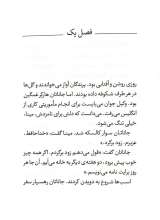 فصل یک
روزی روشن و آفتابی بود. پرندگان آواز می‌خواندند و گل‌ها
در هر طرف شکوفه داده بودند. اما جاناتان هارکر غمگین
بود. وکیل جوان می‌بایست برای انجام مأموریتی کاری از
انگلیس می‌رفت. می‌دانست که دلش برای نامزدش، مینا،
خیلی تنگ می‌شود.
جاناتان سوار کالسکه شد. مینا گفت: «خداحافظ،
عزیزم. زود برگرد.»
جاناتان گفت: «قول می‌دهم زود برگردم. اگر همه چیز
خوب پیش برود، دو هفته‌ی دیگر به خانه می‌آیم. آن‌جا هر
روز برایت نامه می‌نویسم.»
اسب‌ها شروع به دویدن کردند. جاناتان رهسپار سفر